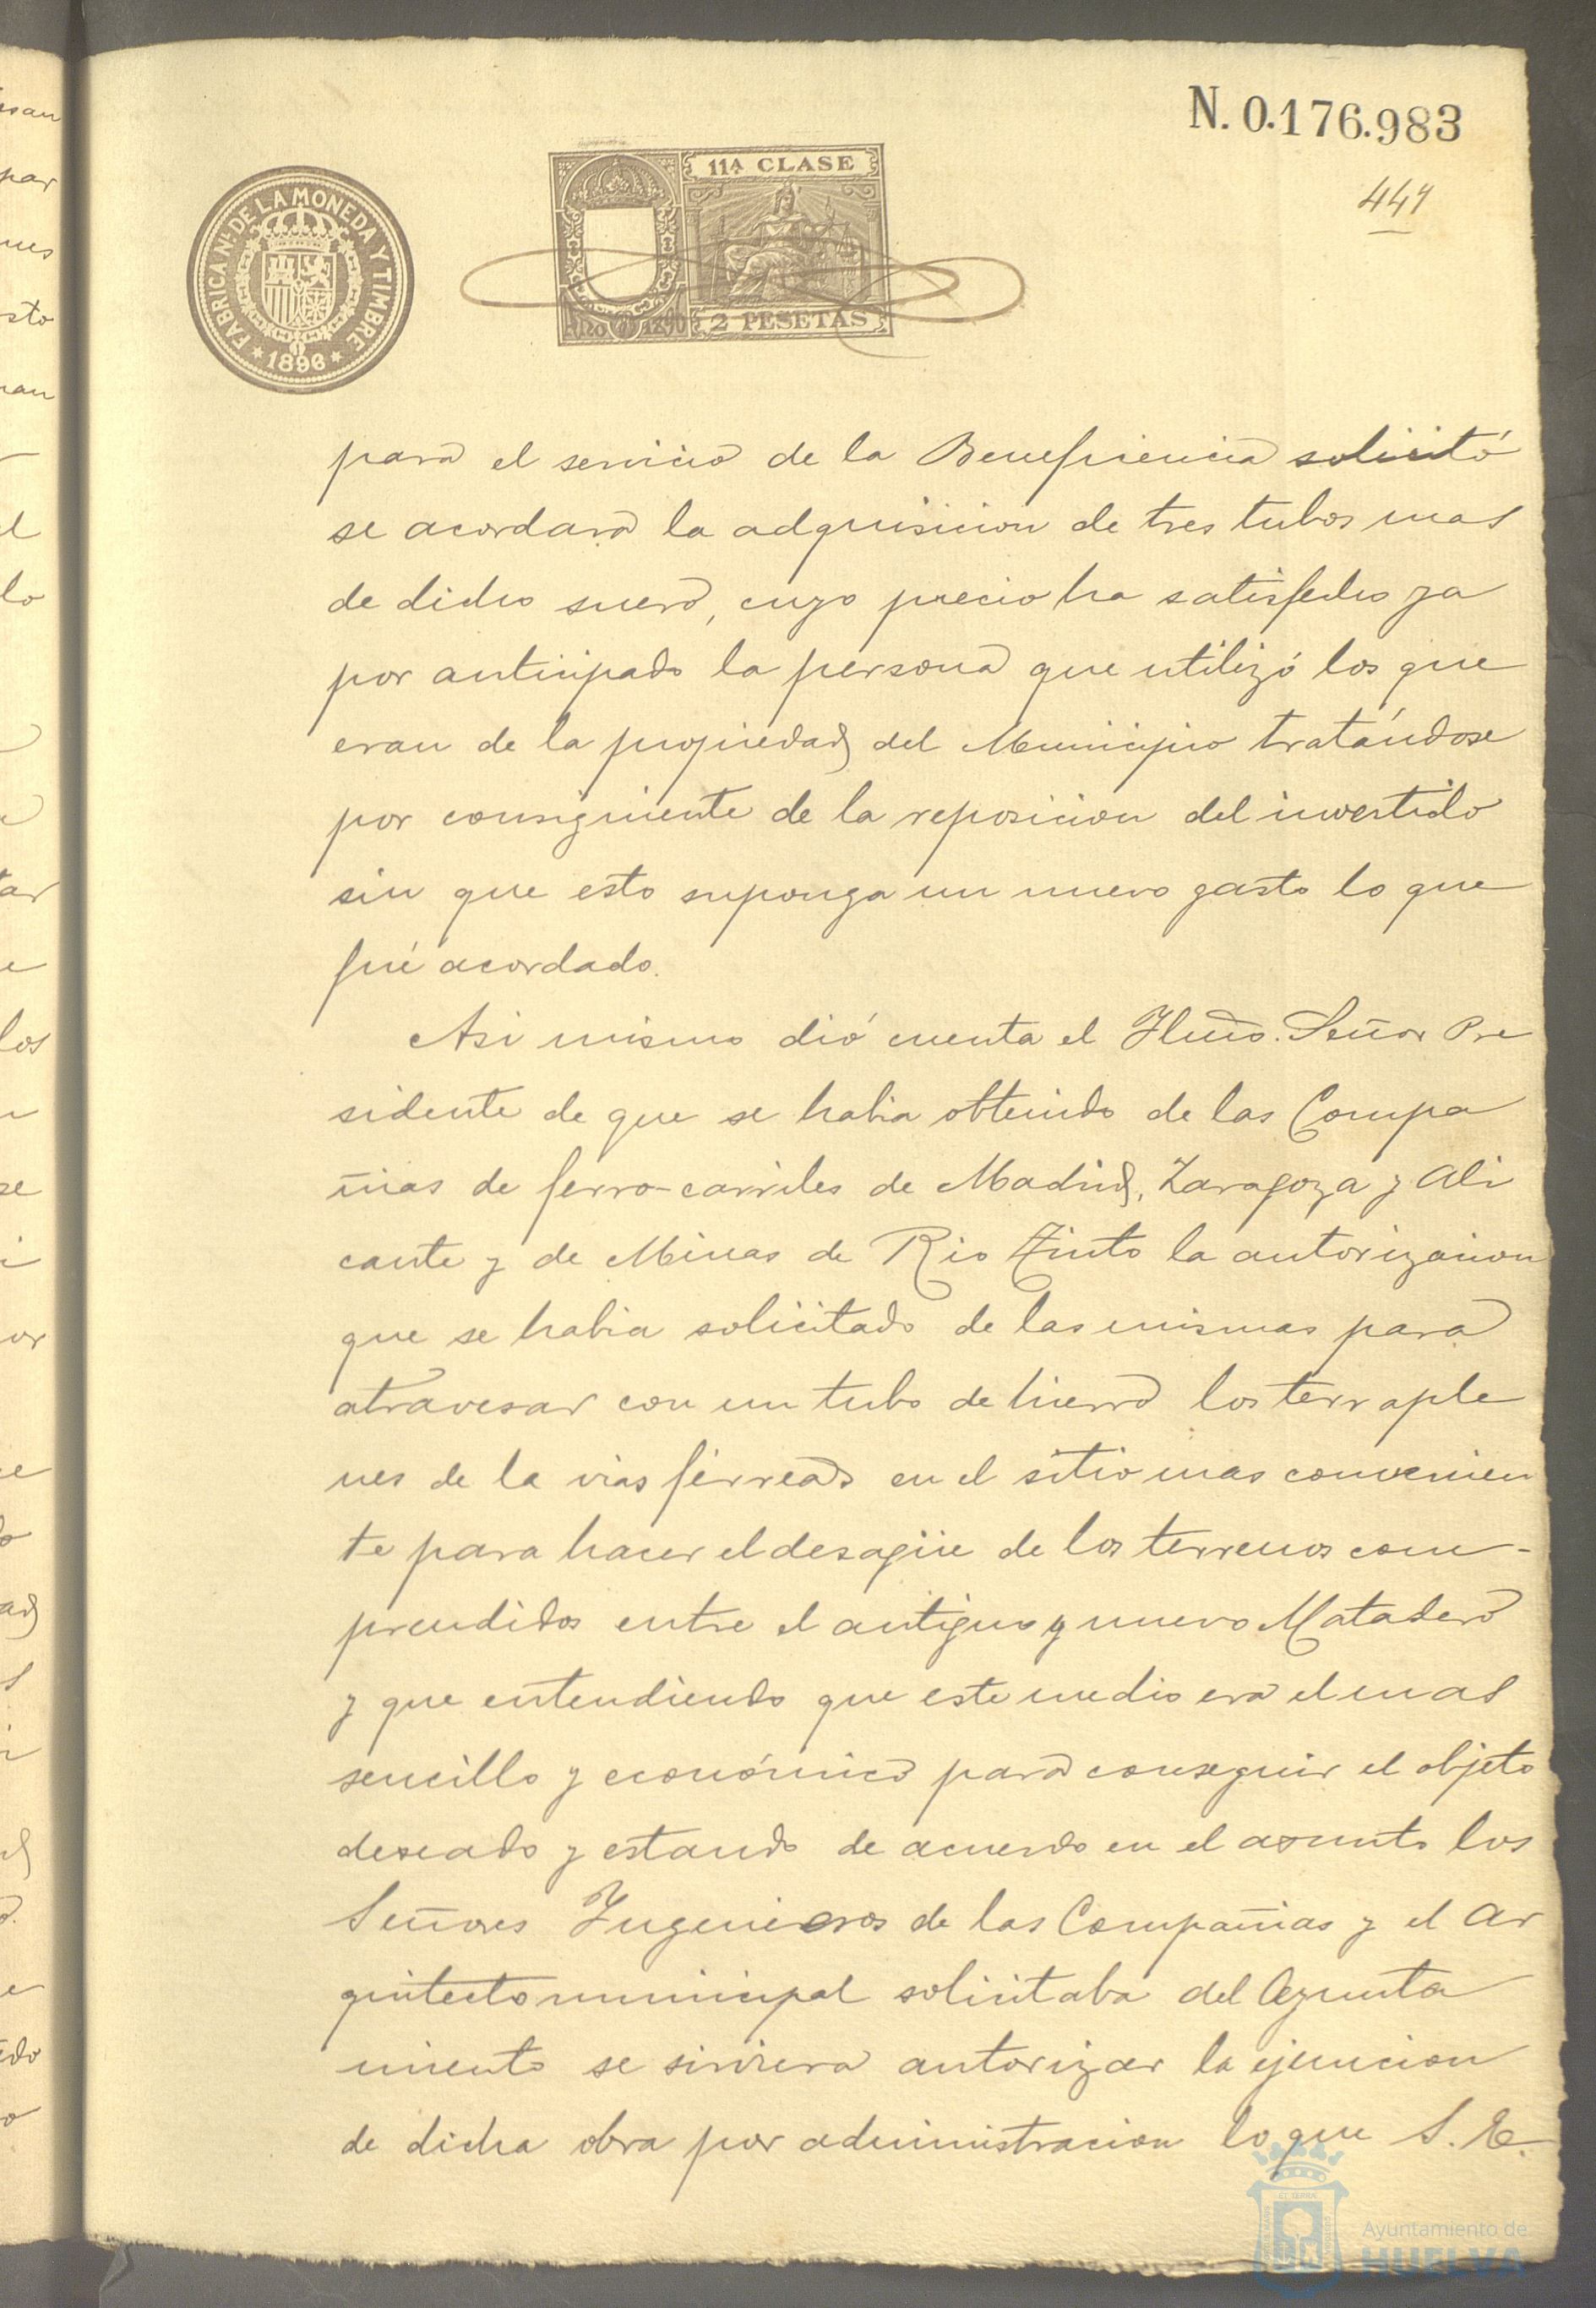 N. 0.176.983
FABRICA NL. DE LA MONEDA Y TIMBRE
* 1896 *
11ª CLASE
2 PESETAS
para el servicio de la Beneficiencia solicitó
se acordara la adquisicion de tres tubos mas
de dicho suero, cuyo precio ha satisfecho ya
por anticipado la persona que utilizó los que
eran de la propiedad del Municipio tratándose
por consiguiente de la reposicion del invertido
sin que esto suponga un nuevo gasto lo que
fué acordado.
Asi mismo dió cuenta el Ilmo. Señor Pre
sidente de que se habia obtenido de las Compa
ñias de ferro-carriles de Madrid, Zaragoza y Ali
cante y de Minas de Rio Tinto la autorizacion
que se habia solicitado de las mismas para
atravesar con un tubo de hierro los terraple
nes de la vias férreas en el sitio mas convenien
te para hacer el desagüe de los terrenos com-
prendidos entre el antiguo y nuevo Matadero
y que entendiendo que este medio era el mas
sencillo y económico para conseguir el objeto
deseado y estando de acuerdo en el asunto los
Señores Ingenieros de las Compañias y el Ar
quitecto municipal solicitaba del Ayunta
miento se sirviera autorizar la ejecucion
de dicha obra por administracion lo que S. E.
Ayuntamiento de
HUELVA